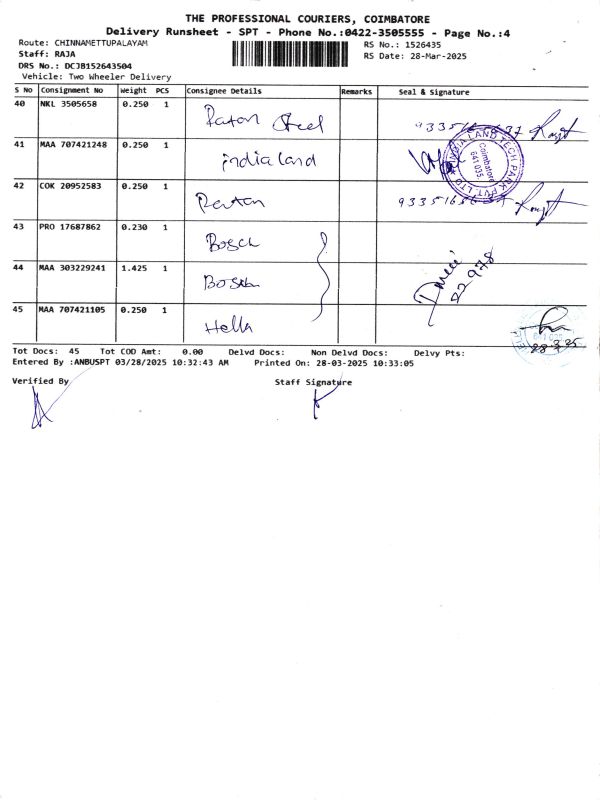 THE PROFESSIONAL COURIERS, COIMBATORE
Delivery Runsheet - SPT - Phone No.:0422-3505555 - Page No.:4
Route: CHINNAMETTUPALAYAM
RS No.: 1526435
Staff: RAJA
RS Date: 28-Mar-2025
DRS No.: DCJB152643504
Vehicle: Two Wheeler Delivery
S No Consignment No Weight PCS Consignee Details Remarks Seal & Signature
40 NKL 3505658 0.250 1 Raton Steel
41 MAA 707421248 0.250 1 india land
INDIA LAND TECH PARK PVT. LTD. Coimbatore 641 035.
42 COK 20952583 0.250 1 Raton
43 PRO 17687862 0.230 1 Bosch
44 MAA 303229241 1.425 1 Bosch
22978
45 MAA 707421105 0.250 1 Hella
28.3.25
Tot Docs: 45 Tot COD Amt: 0.00 Delvd Docs: Non Delvd Docs: Delvy Pts:
Entered By :ANBUSPT 03/28/2025 10:32:43 AM Printed On: 28-03-2025 10:33:05
Verified By Staff Signature